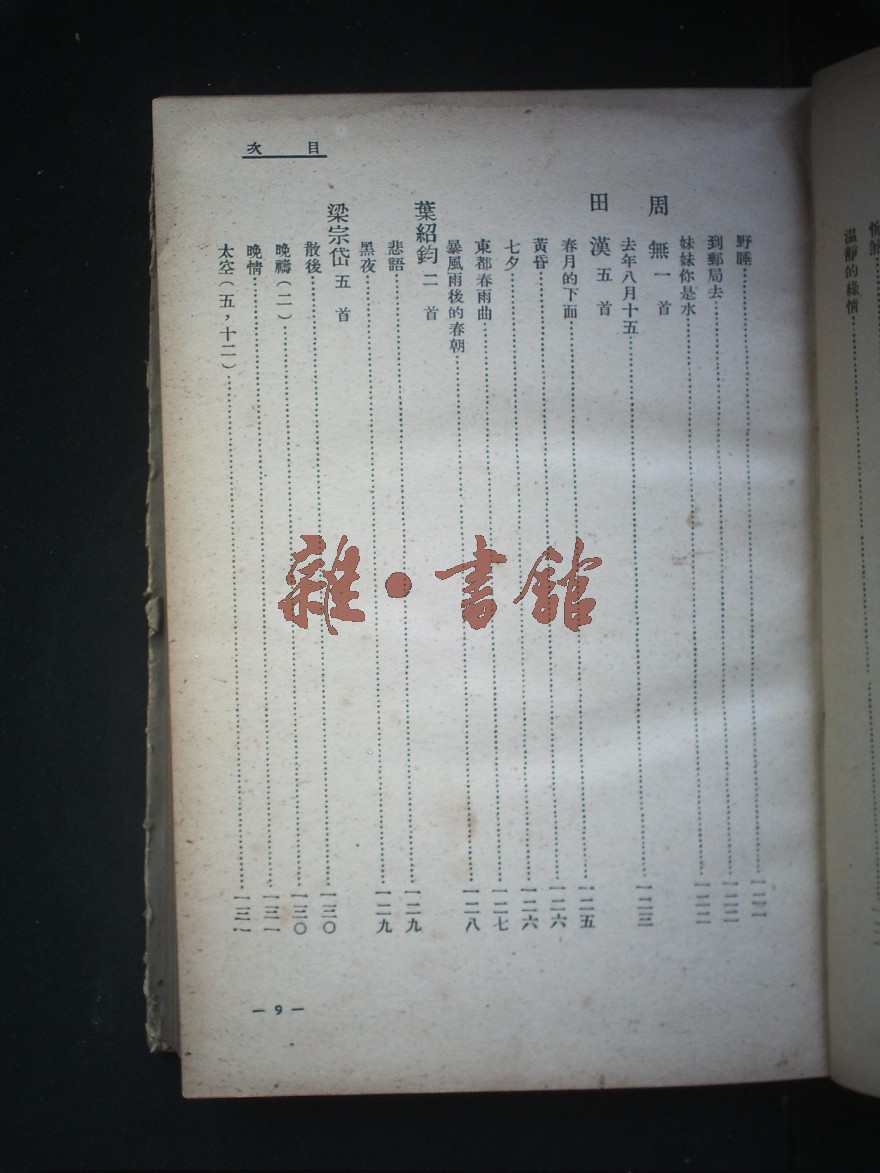 目次
野睡……一二一
到郵局去……一二二
妹妹你是水……一二二
周無 一首
去年八月十五……一二三
田漢 五首
春月的下面……一二五
黃昏……一二六
七夕……一二六
東都春雨曲……一二七
暴風雨後的春朝……一二八
葉紹鈞 二首
悲語……一二九
黑夜……一二九
梁宗岱 五首
散後……一三〇
晚禱(二)……一三〇
晚情……一三一
太空(五,十二)……一三一
— 9 —
溫靜的綠情
雜·書館